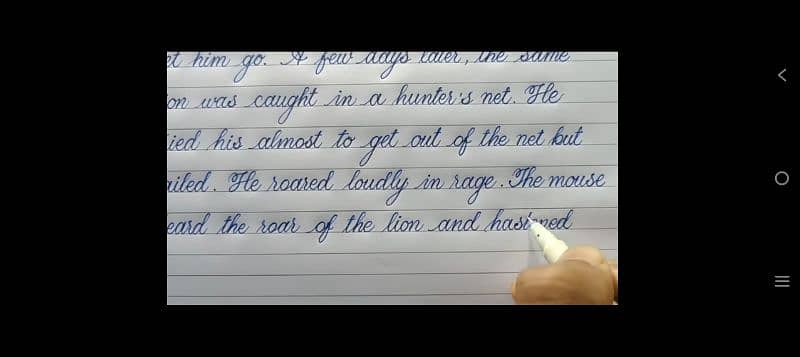 et him go. A few days later, the same
on was caught in a hunter's net. He
ied his almost to get out of the net but
ailed. He roared loudly in rage. The mouse
eard the roar of the lion and hastened